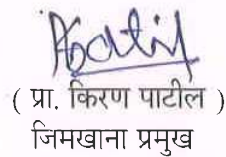 ( प्रा. किरण पाटील )
जिमखाना प्रमुख